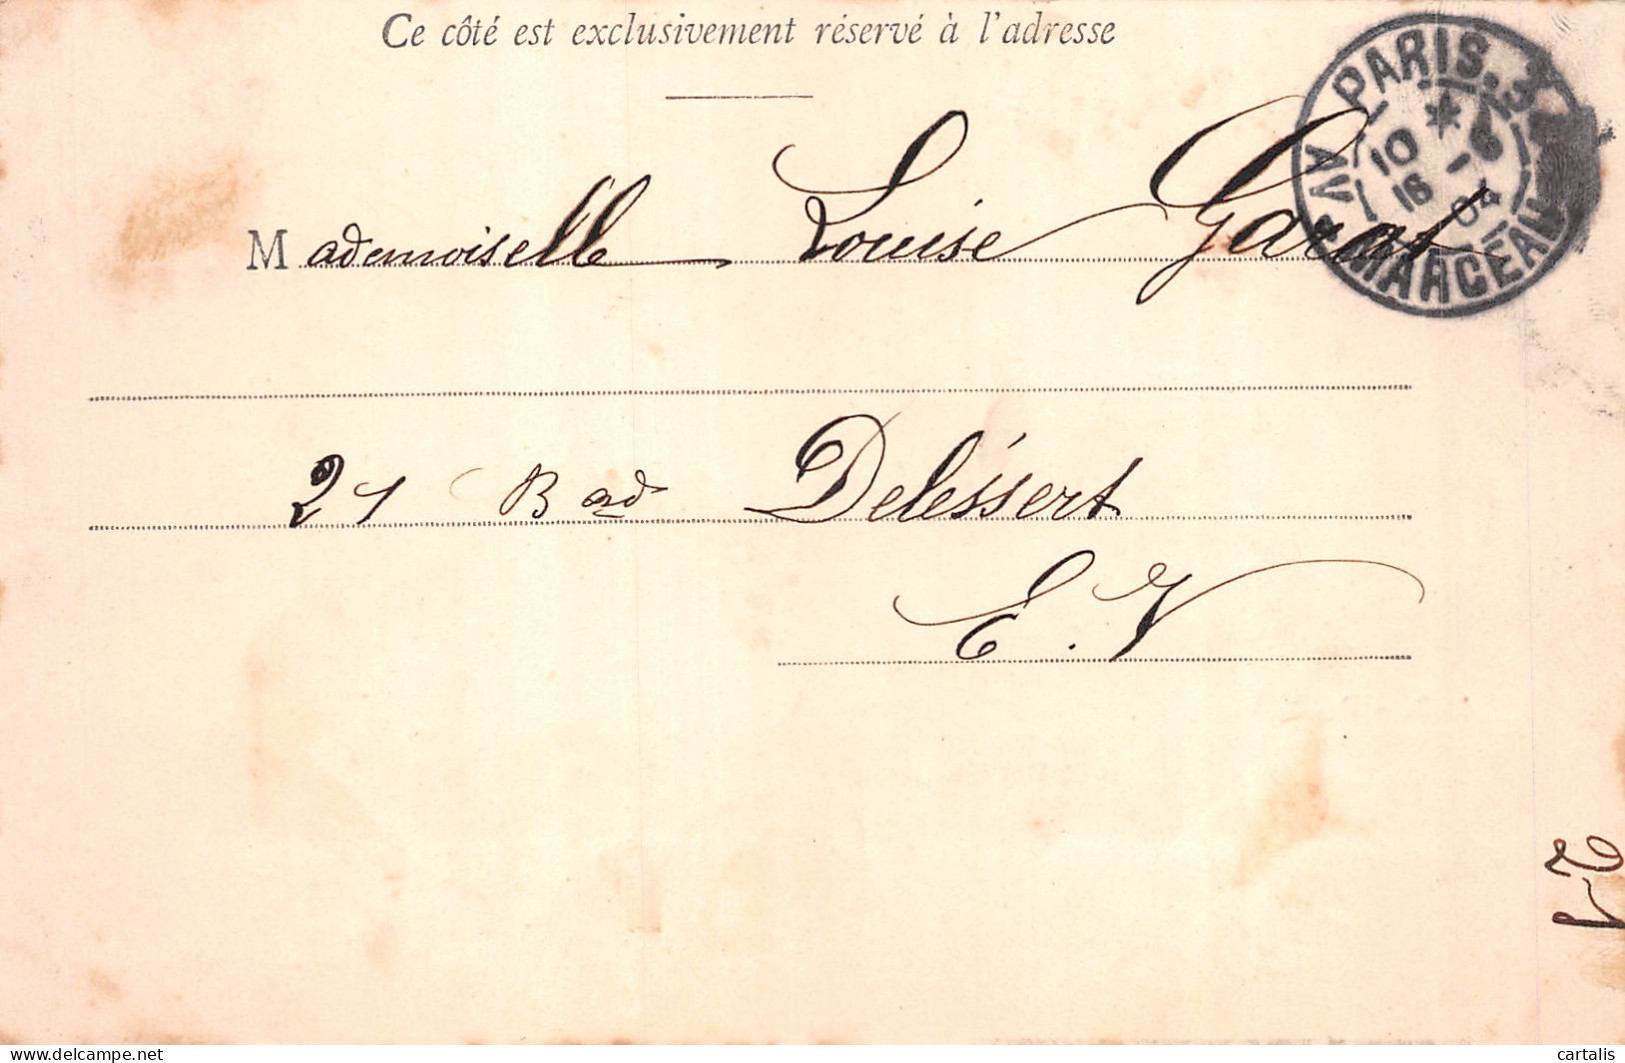 Ce côté est exclusivement réservé à l'adresse
PARIS. 3
10 * 6
16 - 04
AV. MARCEAU
Mademoiselle Louise Garat
21 Bad Deléssert
E. V
21
www.delcampe.net
cartalis